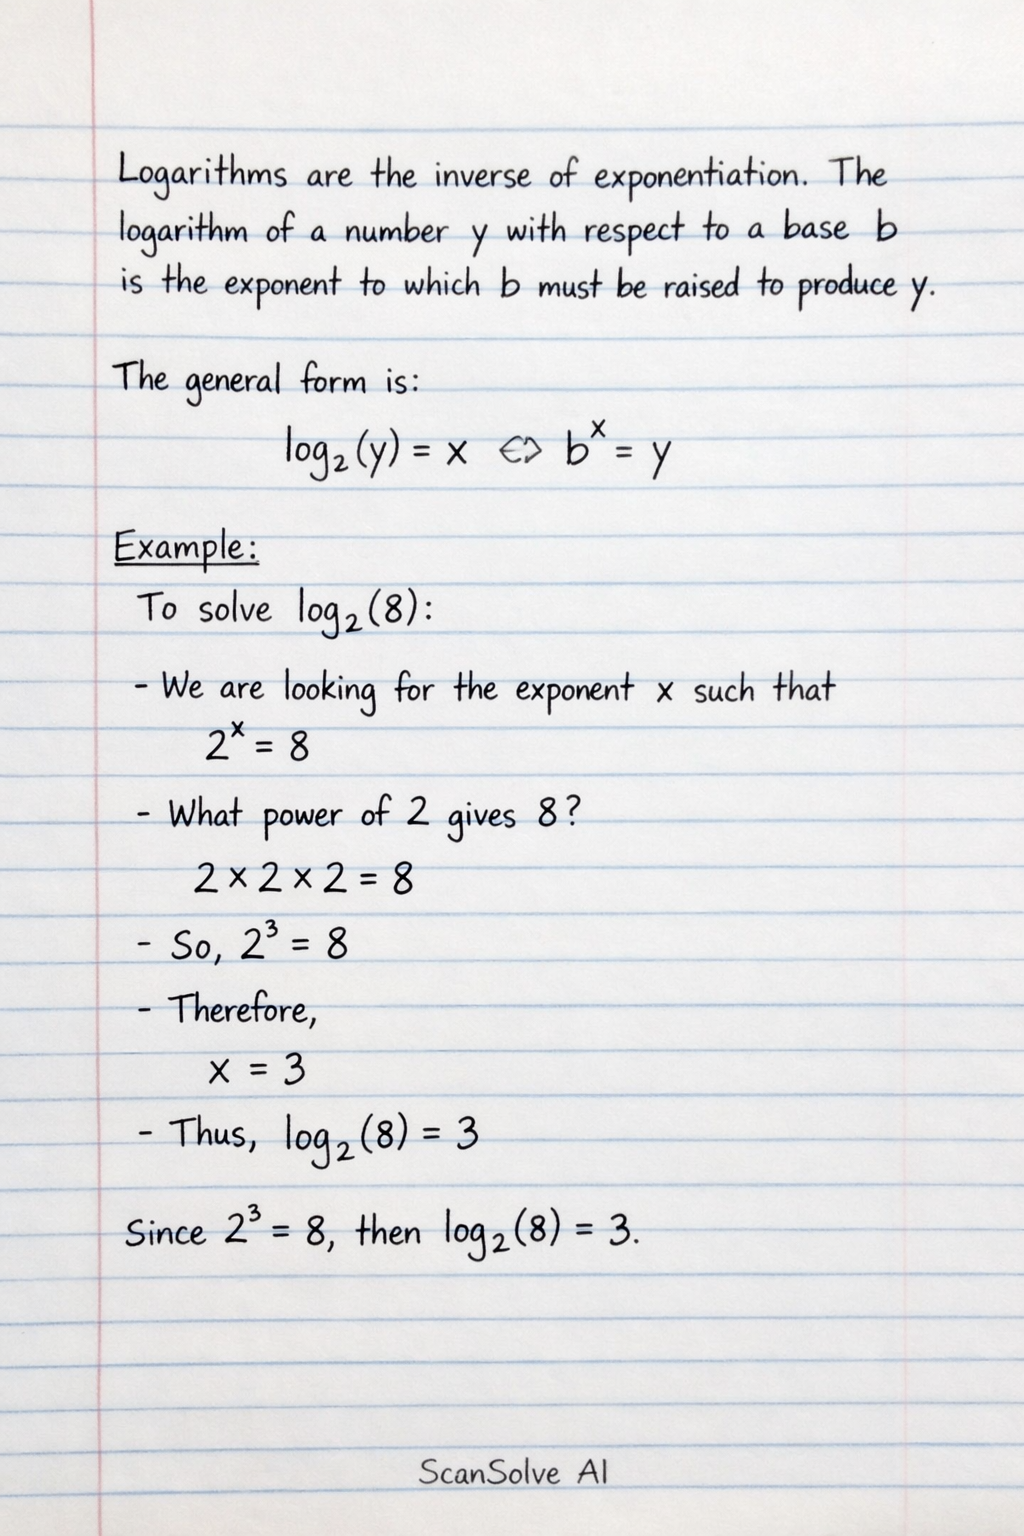 Logarithms are the inverse of exponentiation. The
logarithm of a number y with respect to a base b
is the exponent to which b must be raised to produce y.
The general form is:
log₂(y) = x ⇔ bˣ = y
Example:
To solve log₂(8):
- We are looking for the exponent x such that
2ˣ = 8
- What power of 2 gives 8?
2 × 2 × 2 = 8
- So, 2³ = 8
- Therefore,
x = 3
- Thus, log₂(8) = 3
Since 2³ = 8, then log₂(8) = 3.
ScanSolve AI